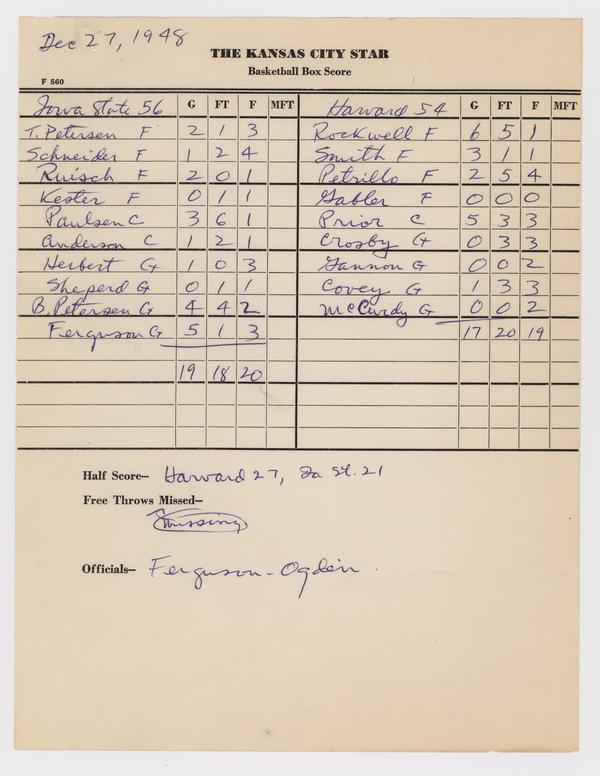 Dec 27, 1948
THE KANSAS CITY STAR
Basketball Box Score
F 560
Iowa State 56 G FT F MFT Harvard 54 G FT F MFT
T. Petersen F 2 1 3 Rockwell F 6 5 1
Schneider F 1 2 4 Smith F 3 1 1
Ruisch F 2 0 1 Petrillo F 2 5 4
Kester F 0 1 1 Gabler F 0 0 0
Paulsen C 3 6 1 Prior C 5 3 3
Anderson C 1 2 1 Crosby G 0 3 3
Herbert G 1 0 3 Gannon G 0 0 2
Sheperd G 0 1 1 Covey G 1 3 3
B. Petersen G 4 4 2 McCurdy G 0 0 2
Ferguson G 5 1 3 17 20 19
19 18 20
Half Score— Harvard 27, Ia St. 21
Free Throws Missed—
missing
Officials— Ferguson - Ogden.